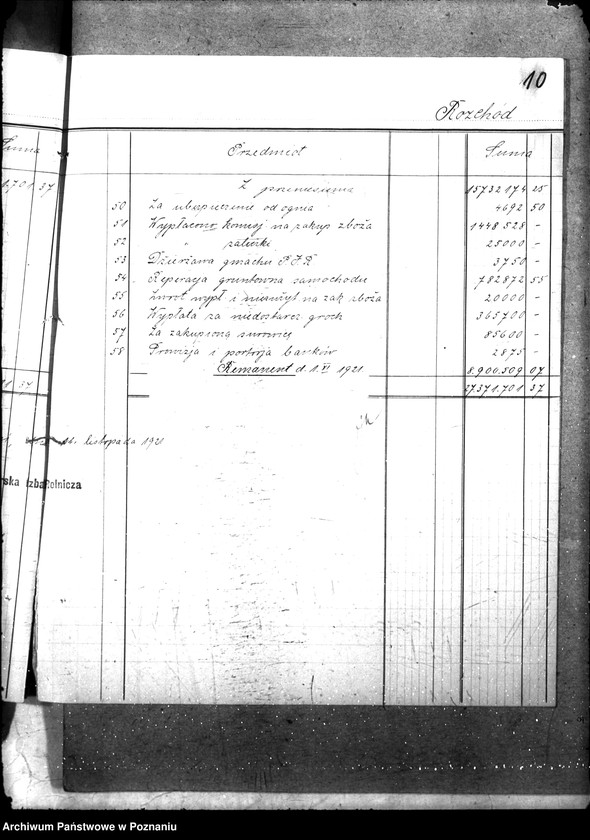 10
Rozchód
Suma
Przedmiot Suma
Z przeniesienia 15732174 25
1.701 37
50 Za ubezpieczenie od ognia 4692 50
51 Wypłacono komisj na zakup zboża 1448528 -
52 " zaliczki 25000 -
53 Dzierżawa gmachu P.I.R. 3750 -
54 Reperacja gruntowna samochodu 782872 55
55 Zwrot wypł i niezużyt na zak zboża 20000 -
56 Wypłata za niedostarcz groch 365700 -
57 Za zakupioną surowicę 85600 -
58 Prowizja i portorja banków 2875 -
Remanent d. 1. XI 1921 8.900.509 07
1 37 27371.701 37
16. listopada 1921
rska Izba Rolnicza
Archiwum Państwowe w Poznaniu